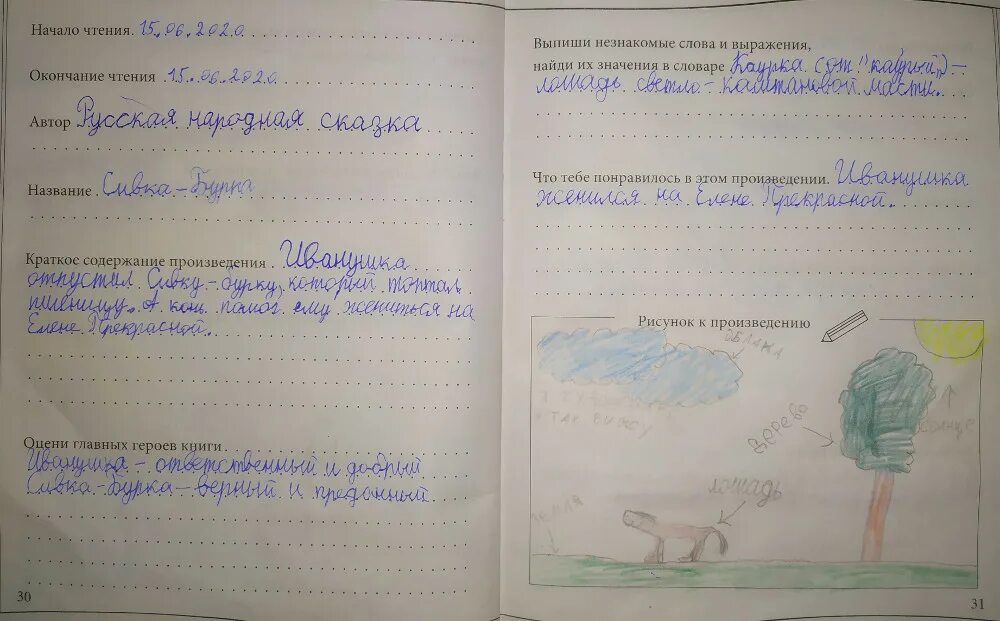 Начало чтения. 15.06.2020.
Окончание чтения 15.06.2020.
Автор Русская народная сказка
Название. Сивка-Бурка
Краткое содержание произведения. Иванушка
отпустил Сивку-бурку, который топтал
пшеницу. А конь помог ему жениться на
Елене Прекрасной.
Оцени главных героев книги.
Иванушка - ответственный и добрый
Сивка-Бурка - верный и преданный
30
Выпиши незнакомые слова и выражения,
найди их значения в словаре Каурка (от "каурый") -
лошадь светло-каштановой масти.
Что тебе понравилось в этом произведении. Иванушка
женился на Елене Прекрасной.
Рисунок к произведению
облака
я так вижу
солнце
дерево
лошадь
земля
31